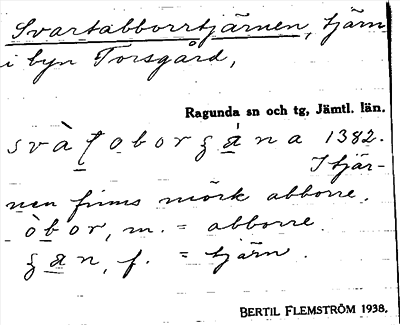 Svartabborrtjärnen, tjärn
i byn Torsgård,
Ragunda sn och tg, Jämtl. län.
svàʈoborʒána 1382.
I tjär-
nen finns mörk abborre.
òbor, m. = abborre.
ʒan, f. = tjärn.
BERTIL FLEMSTRÖM 1938.